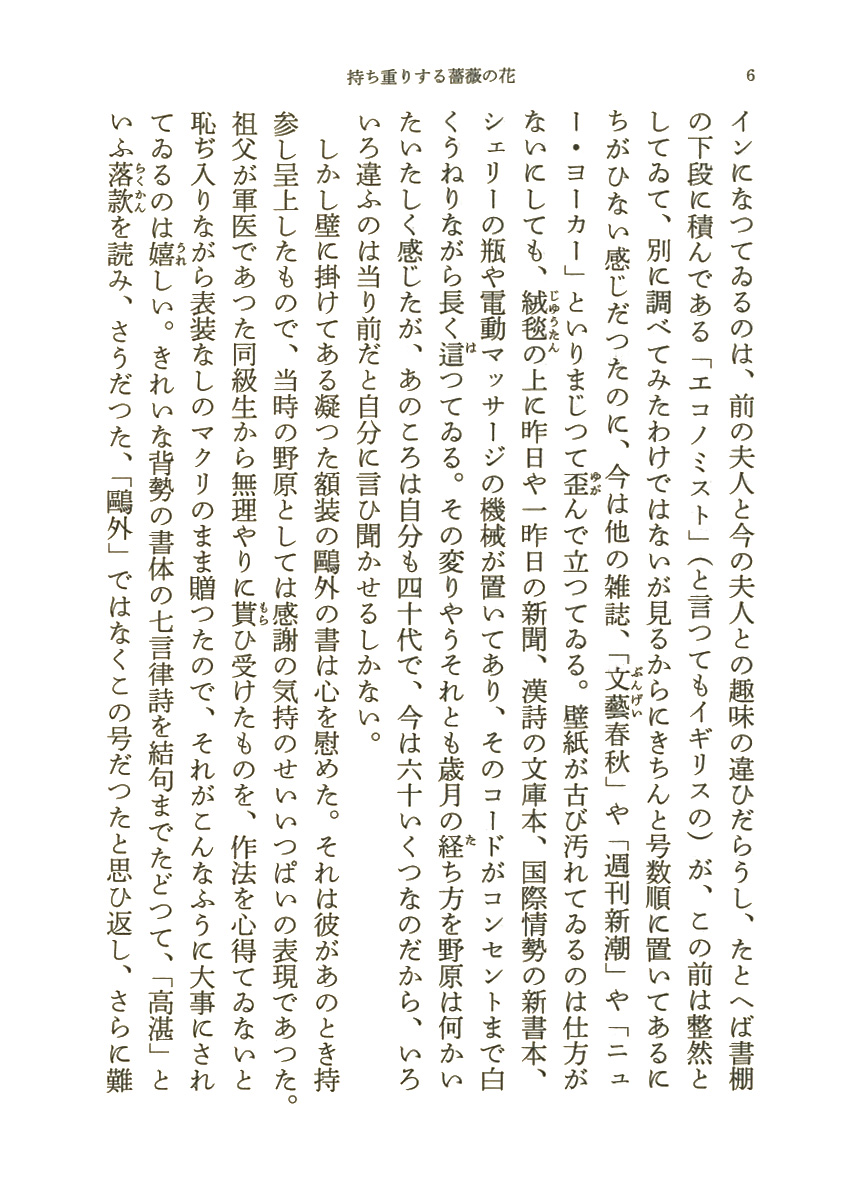 持ち重りする薔薇の花
6
インになつてゐるのは、前の夫人と今の夫人との趣味の違ひだらうし、たとへば書棚
の下段に積んである「エコノミスト」（と言つてもイギリスの）が、この前は整然と
してゐて、別に調べてみたわけではないが見るからにきちんと号数順に置いてあるに
ちがひない感じだつたのに、今は他の雑誌、「文藝春秋」や「週刊新潮」や「ニュ
ー・ヨーカー」といりまじつて歪んで立つてゐる。壁紙が古び汚れてゐるのは仕方が
ないにしても、絨毯の上に昨日や一昨日の新聞、漢詩の文庫本、国際情勢の新書本、
シェリーの瓶や電動マッサージの機械が置いてあり、そのコードがコンセントまで白
くうねりながら長く這つてゐる。その変りやうそれとも歳月の経ち方を野原は何かい
たいたしく感じたが、あのころは自分も四十代で、今は六十いくつなのだから、いろ
いろ違ふのは当り前だと自分に言ひ聞かせるしかない。
しかし壁に掛けてある凝つた額装の鷗外の書は心を慰めた。それは彼があのとき持
参し呈上したもので、当時の野原としては感謝の気持のせいいつぱいの表現であつた。
祖父が軍医であつた同級生から無理やりに貰ひ受けたものを、作法を心得てゐないと
恥ぢ入りながら表装なしのマクリのまま贈つたので、それがこんなふうに大事にされ
てゐるのは嬉しい。きれいな背勢の書体の七言律詩を結句までたどつて、「高湛」と
いふ落款を読み、さうだつた、「鷗外」ではなくこの号だつたと思ひ返し、さらに難